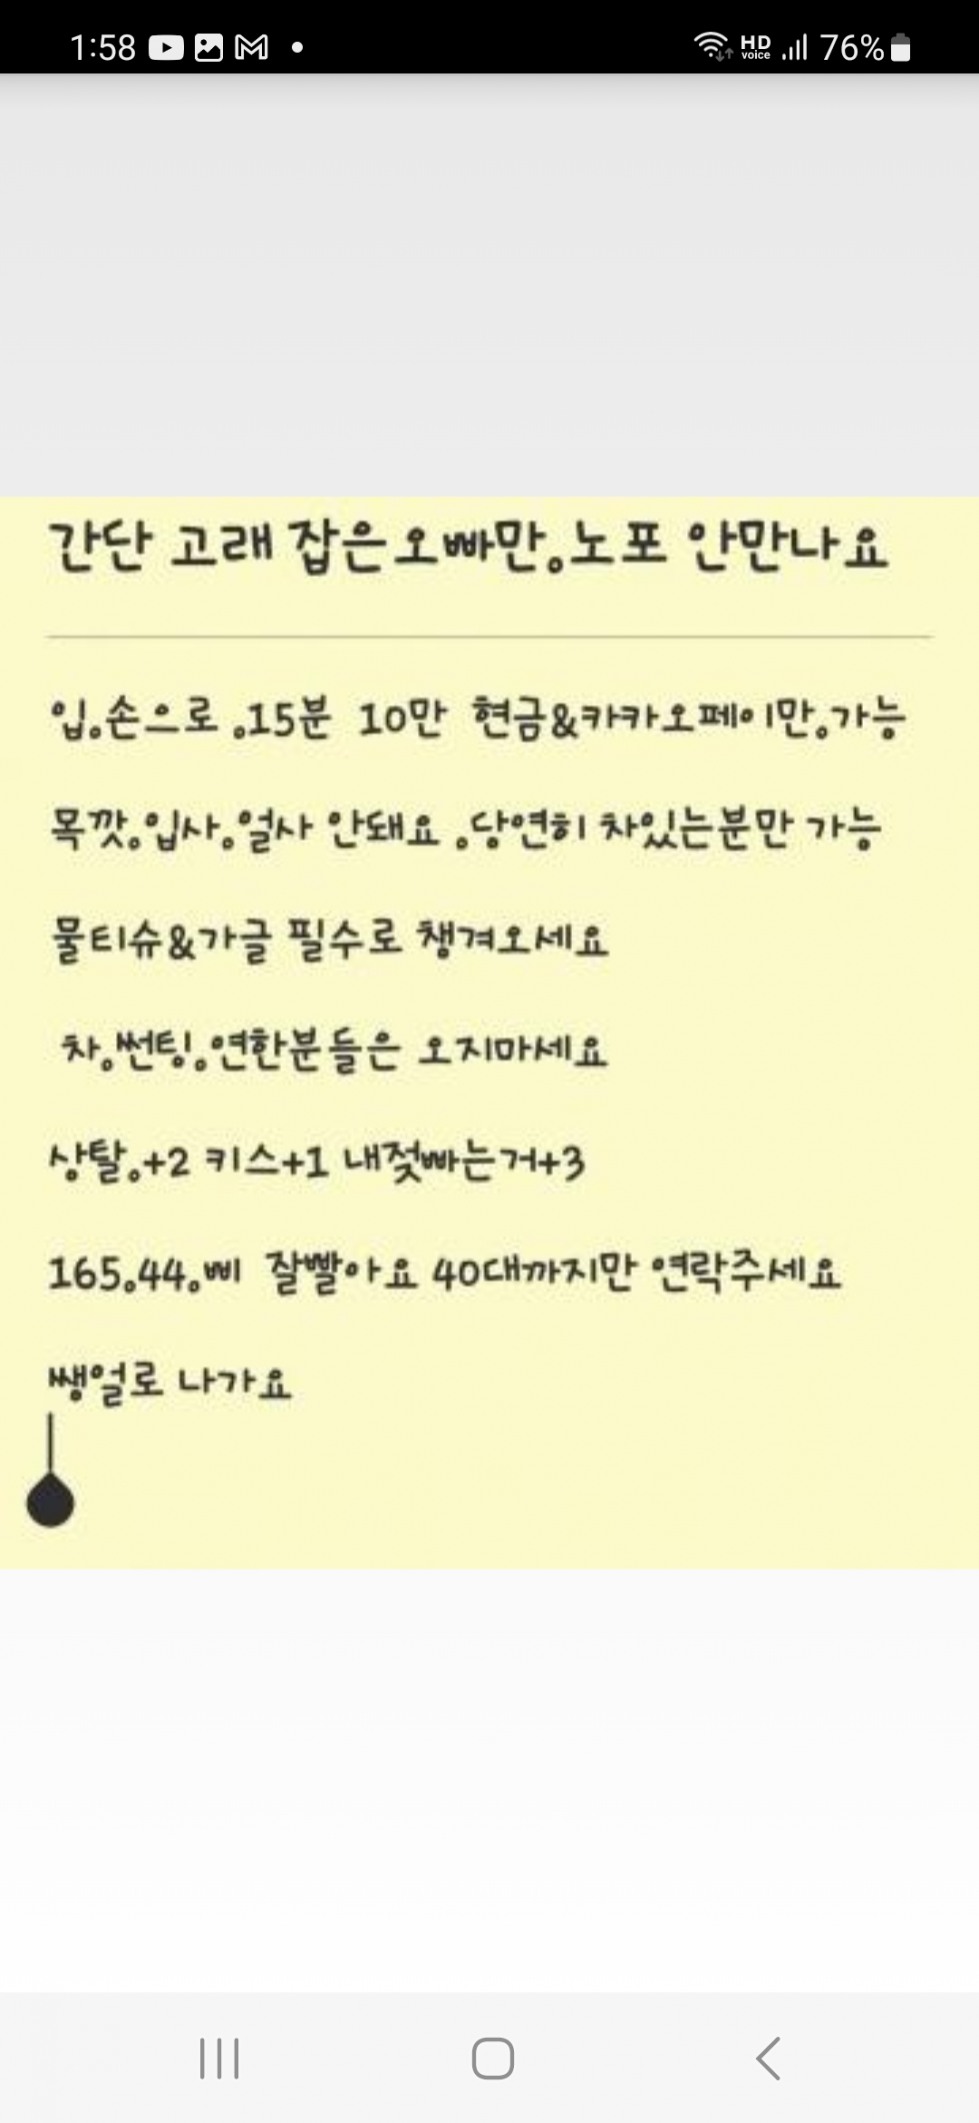 1:58 HD voice 76%
간단 고래 잡은오빠만.노포 안만나요
입.손으로 .15분 10만 현금&카카오페이만.가능
목깟.입사.얼사 안돼요 .당연히 차있는분만 가능
물티슈&가글 필수로 챙겨오세요
차.썬팅.연한분들은 오지마세요
상탈.+2 키스+1 내젖빠는거+3
165.44.삐 잘빨아요 40대까지만 연락주세요
쌩얼로 나가요